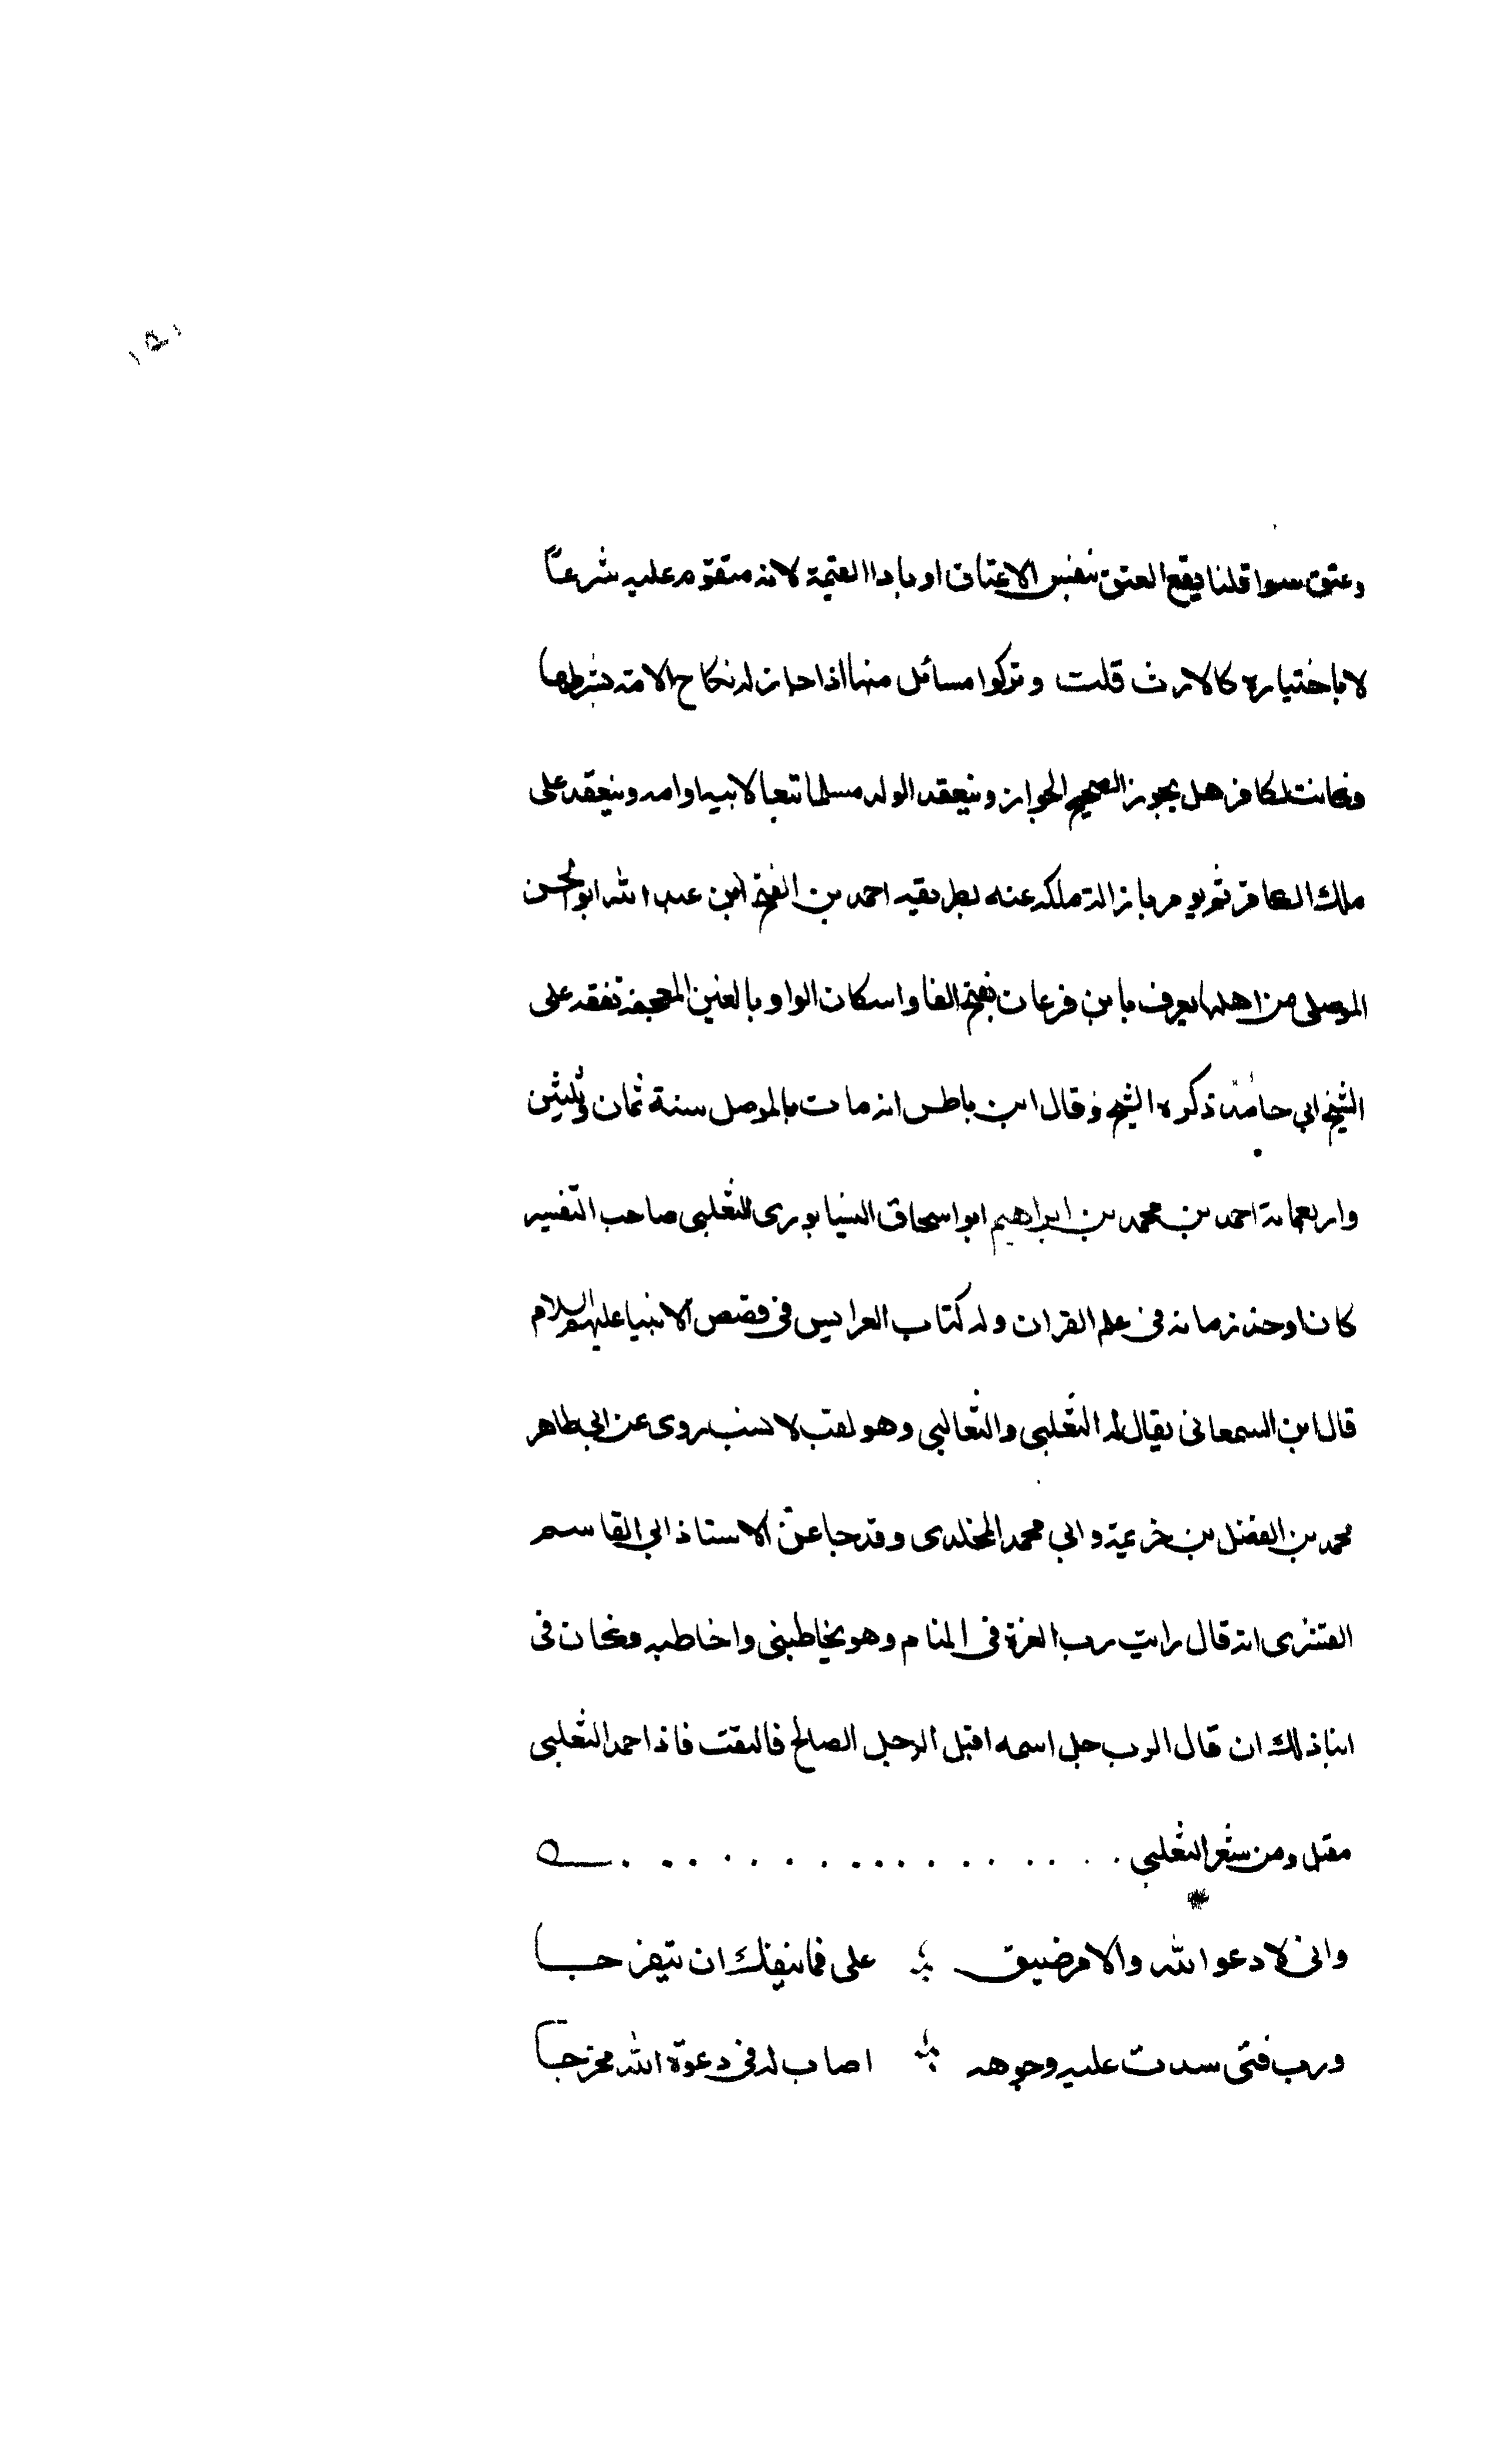 وعتق سوا قلنا يقع العتق بنفس الاعتاق او باداالقيمة لانه متقوم عليه شرعاً
لا باختياره كالارث قلت وتركوا مسائل منها اذا جاز له نكاح الامة بشرطها
وكانت لكافر هل يجوز الصحيح الجواز وينعقد الولد مسلما تبعا لابيه او امه وينعقد على
ملك الكافر ثم يومر بازالة ملكه عنه بطريقه احمد بن الفتح ابن عبد الله ابو الحسن
الموصلى من اهلها يعرف بابن فرغان بفتح الفا واسكان الواو بالغين المعجمة تفقه على
الشيخ ابي حامد ذكره الشيخ وقال ابن باطس انه مات بالموصل سنة ثمان وثلثين
واربعمائة احمد بن محمد بن ابراهيم ابو اسحاق النيسابورى الثعلبى صاحب التفسير
كان اوحد زمانه فى علم القران وله كتاب العرايس فى قصص الانبيا عليهم السلام
قال ابن السمعانى يقال له الثعلبى والثعالبى وهو لقب لا نسب روى عن ابى طاهر
محمد بن الفضل بن خزيمة وابي محمد المخلدى وقد جا عن الاستاذ ابي القاسم
القشيرى انه قال رايت رب العزة فى المنام وهو يخاطبنى واخاطبه فكان فى
اثنا ذلك ان قال الرب جل اسمه اقبل الرجل الصالح فالتفت فاذا احمد الثعلبى
مقبل ومن شعر الثعلبي
وانى لادعو الله والامر ضيق على فما ينفك ان يتفرجا
ورب فتى سدت عليه وجوهه اصاب له فى دعوة الله مخرجا